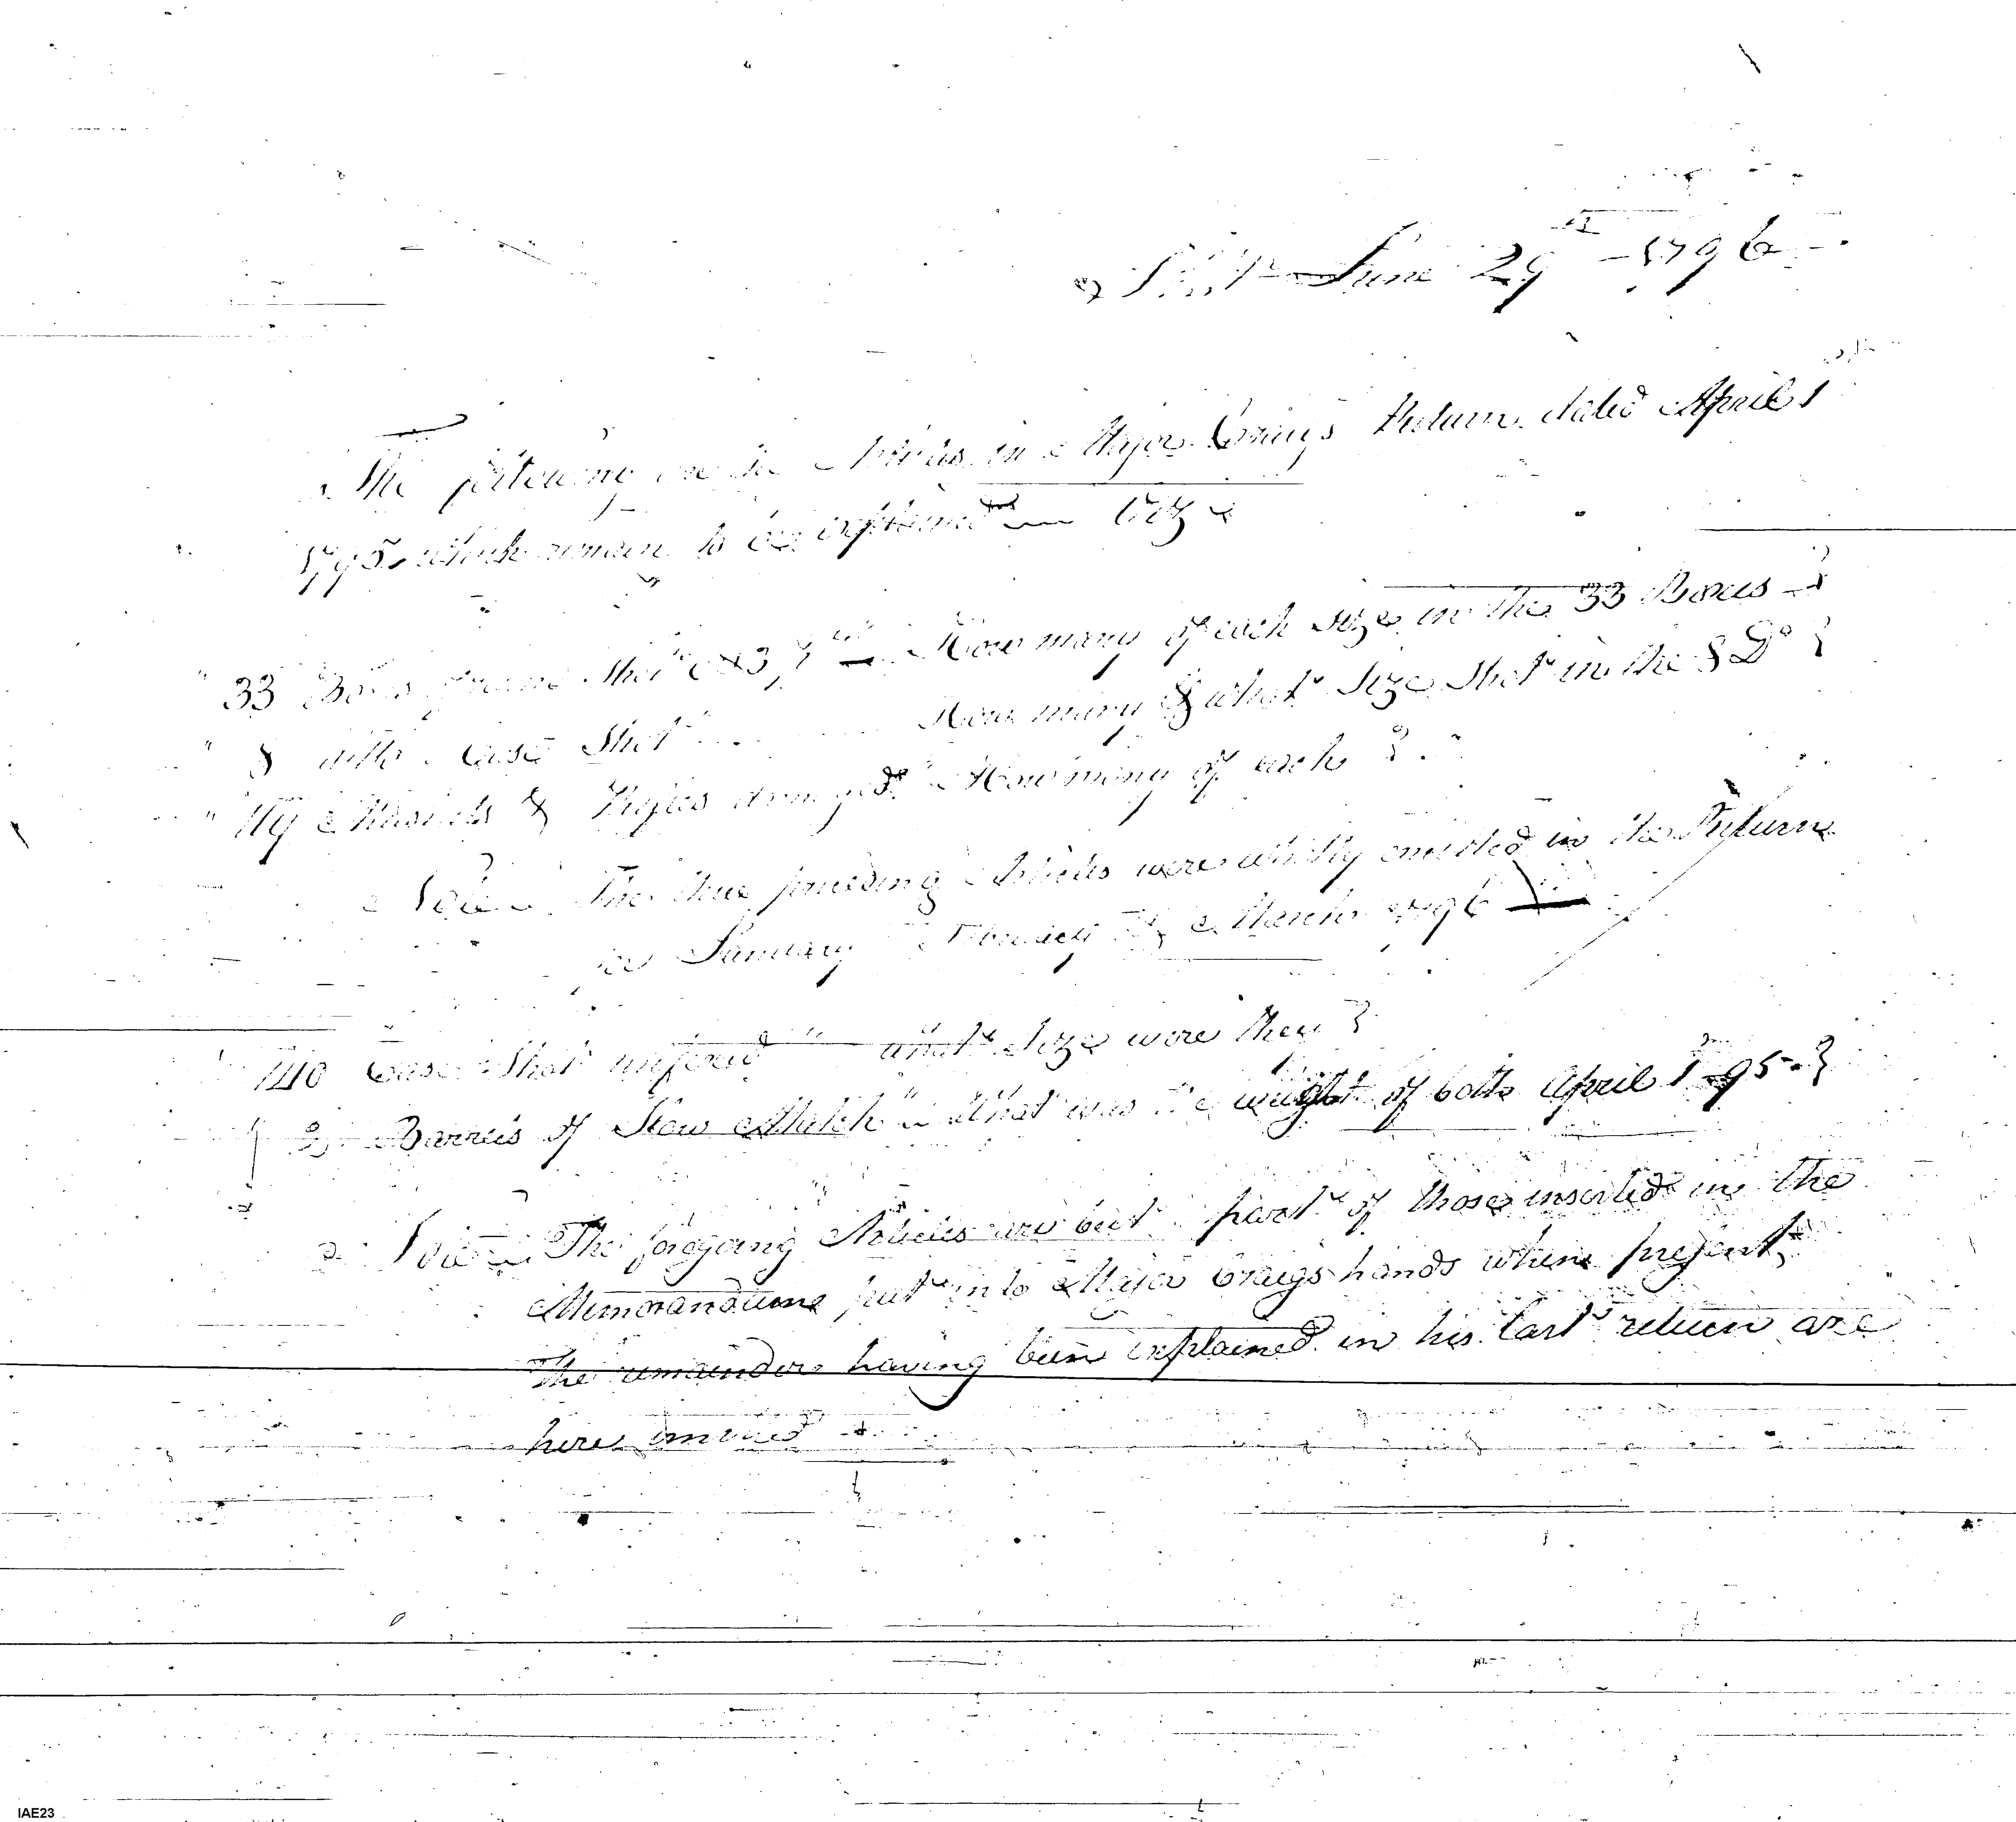 June 29 1796
The following are the Articles in Major Craigs Return dated April 1
1795 which remain to be explained Viz
" 33 Boxes Shot How many of each size in the 33 Boxes ?
" 8 ditto Case Shot How many & what Size Shot in the 8 Do ?
" 119 Muskets & Rifles damaged How many of each ?
Note The three preceding Articles were wholly omitted in the Return
for January February & March 1796
" 1410 Case Shot unfixed " what Size were they ?
" 2 Barrels of Slow Match " What was the weight of both April 1 95 ?
Note The foregoing Articles are but part of those inserted in the
Memorandum put into Major Craigs hands when present,
The remainder having been explained in his last return are
here omitted
IAE23